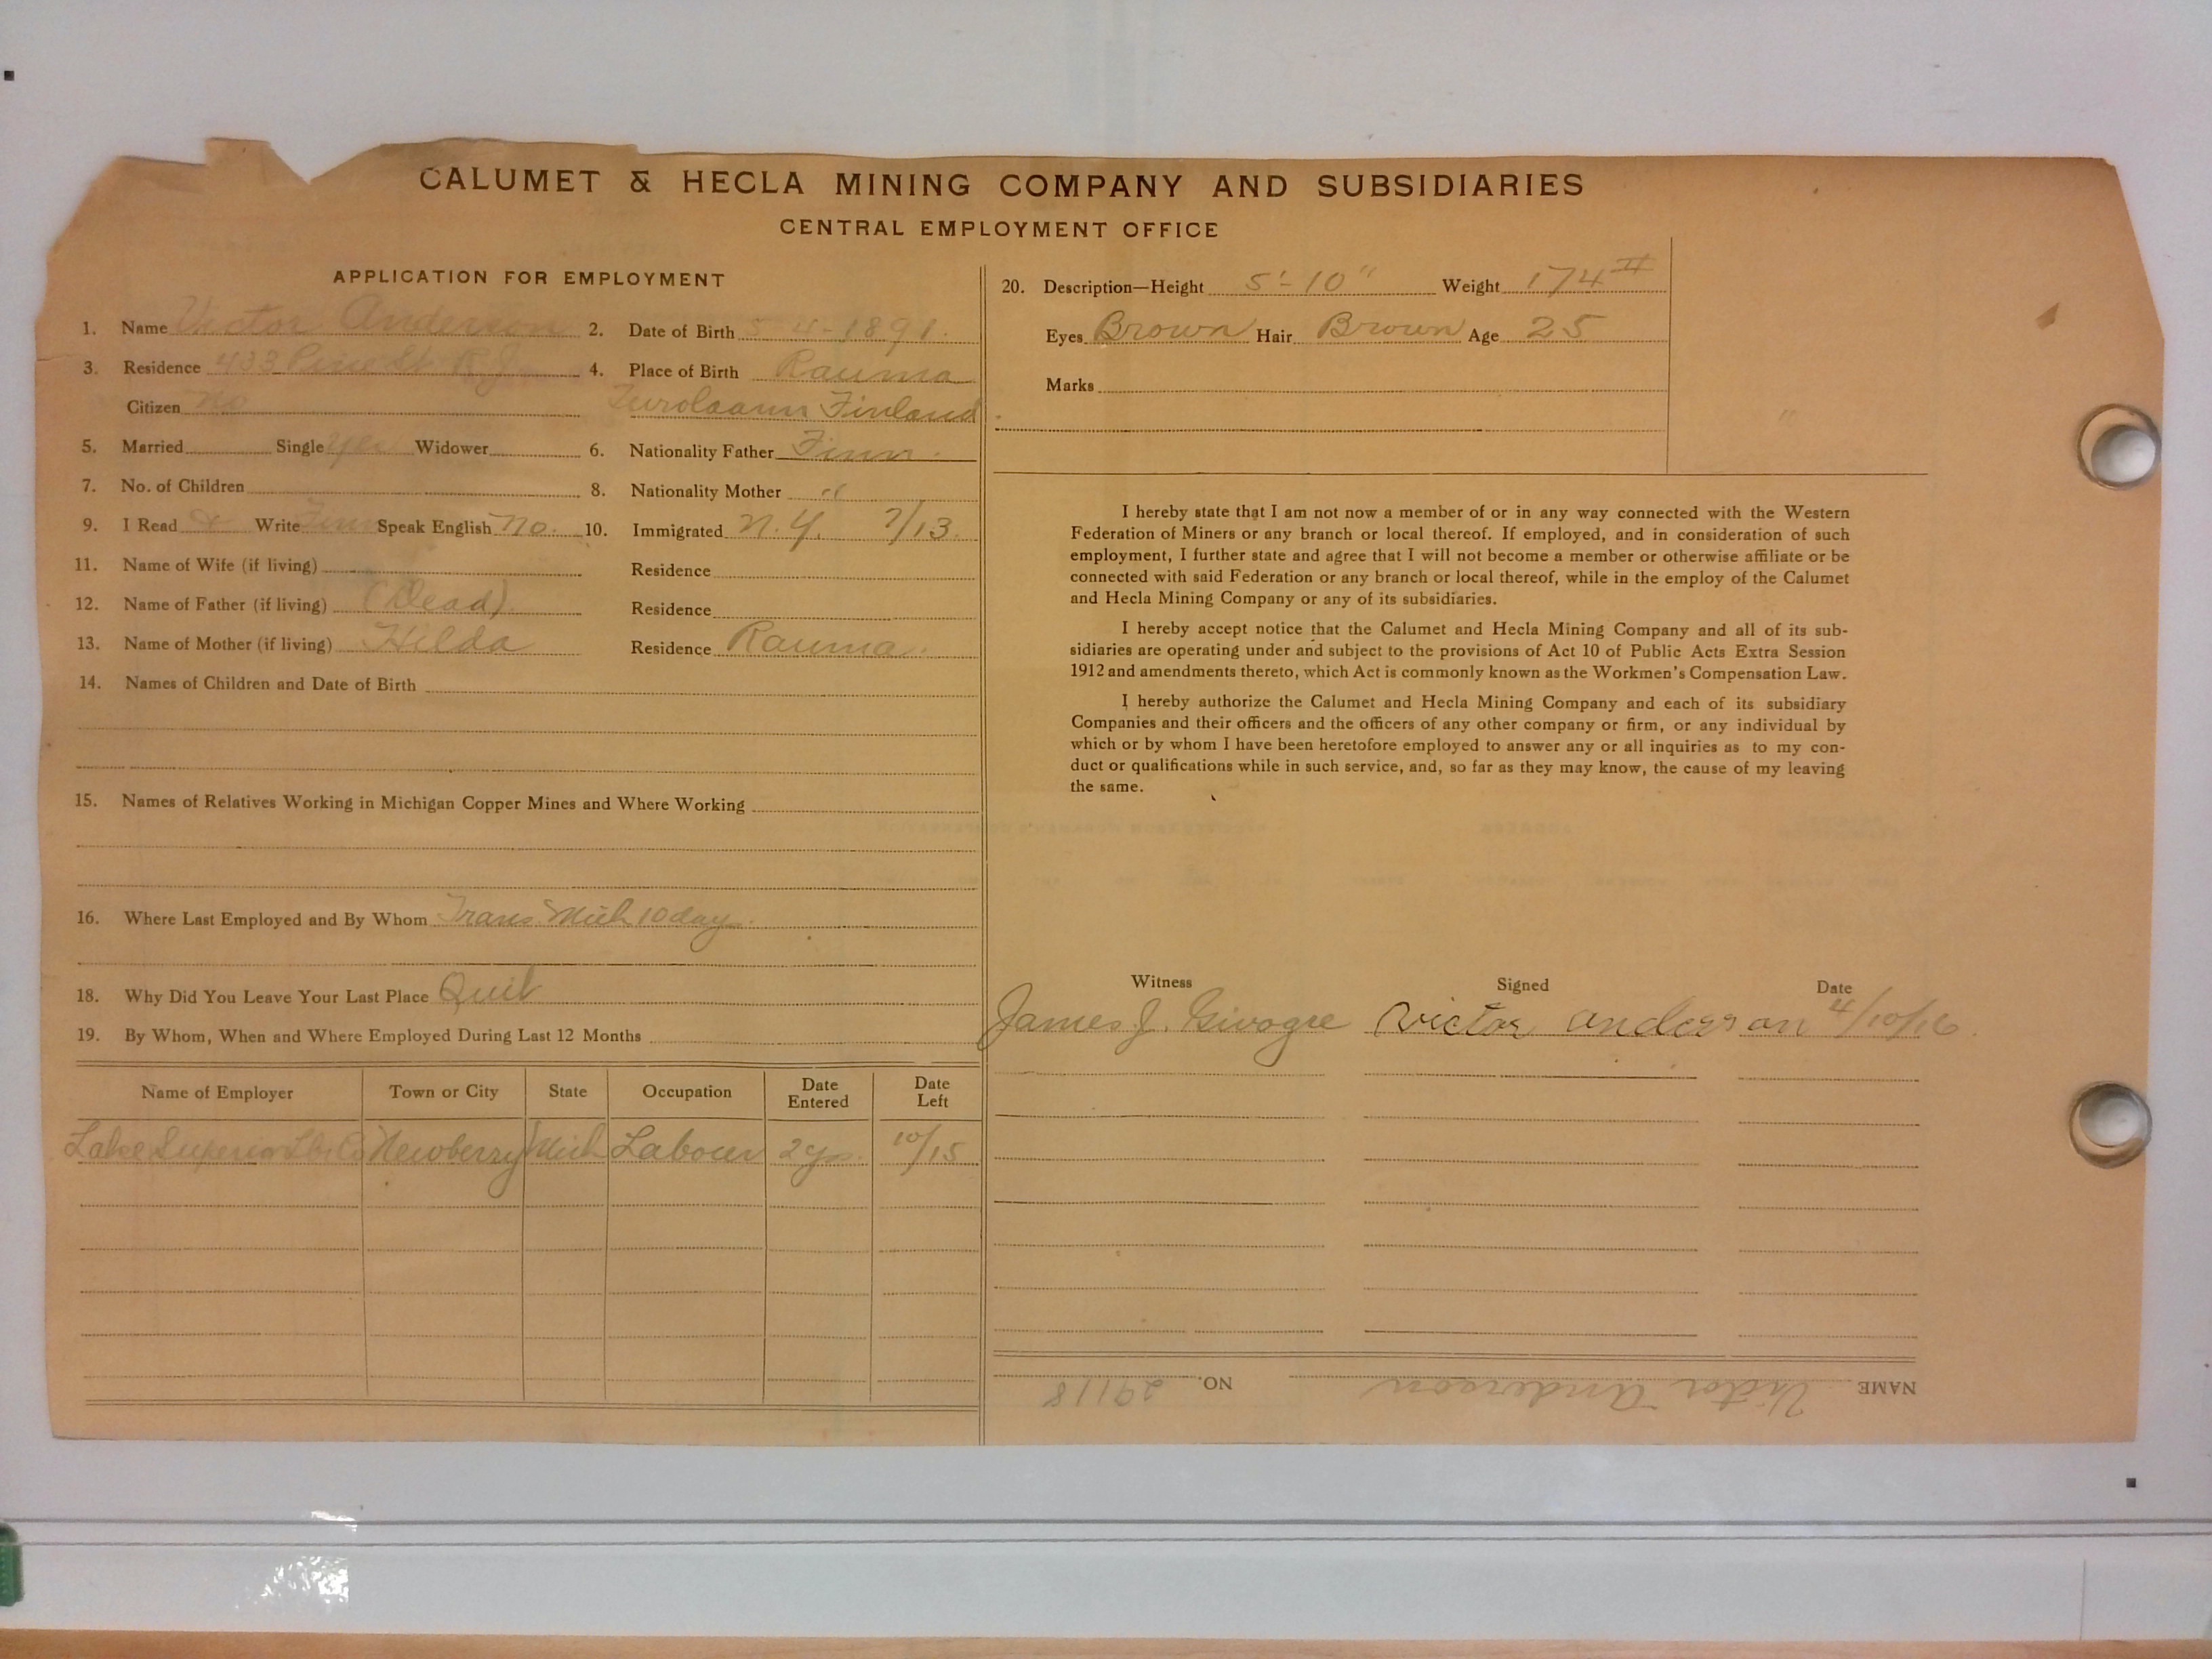 CALUMET & HECLA MINING COMPANY AND SUBSIDIARIES
CENTRAL EMPLOYMENT OFFICE
APPLICATION FOR EMPLOYMENT
1. Name Victor Anderson 2. Date of Birth 5 4-1891.
3. Residence 433 Pine St. R.J. 4. Place of Birth Rauma
Citizen No Finland
5. Married Single Yes Widower 6. Nationality Father Finn.
7. No. of Children 8. Nationality Mother "
9. I Read & Write Finn Speak English No. 10. Immigrated N.Y. 7/13.
11. Name of Wife (if living) Residence
12. Name of Father (if living) (Dead) Residence
13. Name of Mother (if living) Hilda Residence Rauma.
14. Names of Children and Date of Birth
15. Names of Relatives Working in Michigan Copper Mines and Where Working
16. Where Last Employed and By Whom Trans. Mich 10 days.
18. Why Did You Leave Your Last Place Quit
19. By Whom, When and Where Employed During Last 12 Months
Name of Employer Town or City State Occupation Date Entered Date Left
Lake Superior Co Newberry Mich Labour 2 yrs. 10/15
20. Description—Height 5'-10" Weight 174 #
Eyes Brown Hair Brown Age 25
Marks
I hereby state that I am not now a member of or in any way connected with the Western
Federation of Miners or any branch or local thereof. If employed, and in consideration of such
employment, I further state and agree that I will not become a member or otherwise affiliate or be
connected with said Federation or any branch or local thereof, while in the employ of the Calumet
and Hecla Mining Company or any of its subsidiaries.
I hereby accept notice that the Calumet and Hecla Mining Company and all of its sub-
sidiaries are operating under and subject to the provisions of Act 10 of Public Acts Extra Session
1912 and amendments thereto, which Act is commonly known as the Workmen's Compensation Law.
I hereby authorize the Calumet and Hecla Mining Company and each of its subsidiary
Companies and their officers and the officers of any other company or firm, or any individual by
which or by whom I have been heretofore employed to answer any or all inquiries as to my con-
duct or qualifications while in such service, and, so far as they may know, the cause of my leaving
the same.
Witness Signed Date
James J. Givogre Victor anderson 4/10/16
NAME Victor Anderson NO. 29118